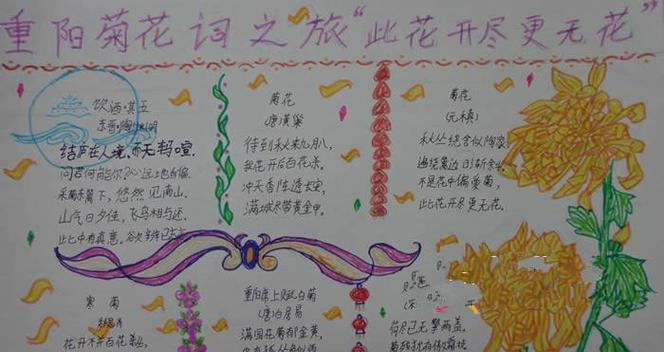 重阳菊花词之旅“此花开尽更无花”
饮酒·其五
东晋·陶渊明
结庐在人境，而无车马喧.
问君何能尔？心远地自偏.
采菊东篱下，悠然见南山.
山气日夕佳，飞鸟相与还.
此中有真意，欲辨已忘言.
菊花
唐·黄巢
待到秋来九月八，
我花开后百花杀.
冲天香阵透长安，
满城尽带黄金甲.
菊花
(元稹)
秋丛绕舍似陶家，
遍绕篱边日渐斜.
不是花中偏爱菊，
此花开尽更无花.
寒菊
郑思肖
花开不并百花丛，
重阳席上赋白菊
唐·白居易
满园花菊郁金黄，
荷尽已无擎雨盖，
菊残犹有傲霜枝